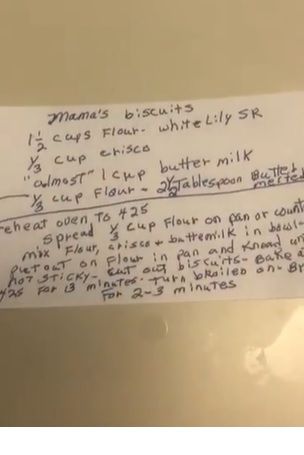 Mama's biscuits
1 1/2 cups Flour- white Lily SR
1/3 cup crisco
"almost" 1 cup butter milk
1/3 cup Flour - 2 1/2 Tablespoon Butter melted
reheat oven to 425
spread 1/3 cup Flour on pan or count
mix Flour, crisco + buttemilk in bowl-
put out on Flour in pan and Knead un
not sticky- cut out biscuits- Bake a
425 for 13 minutes- turn broiler on- Br
for 2-3 minutes